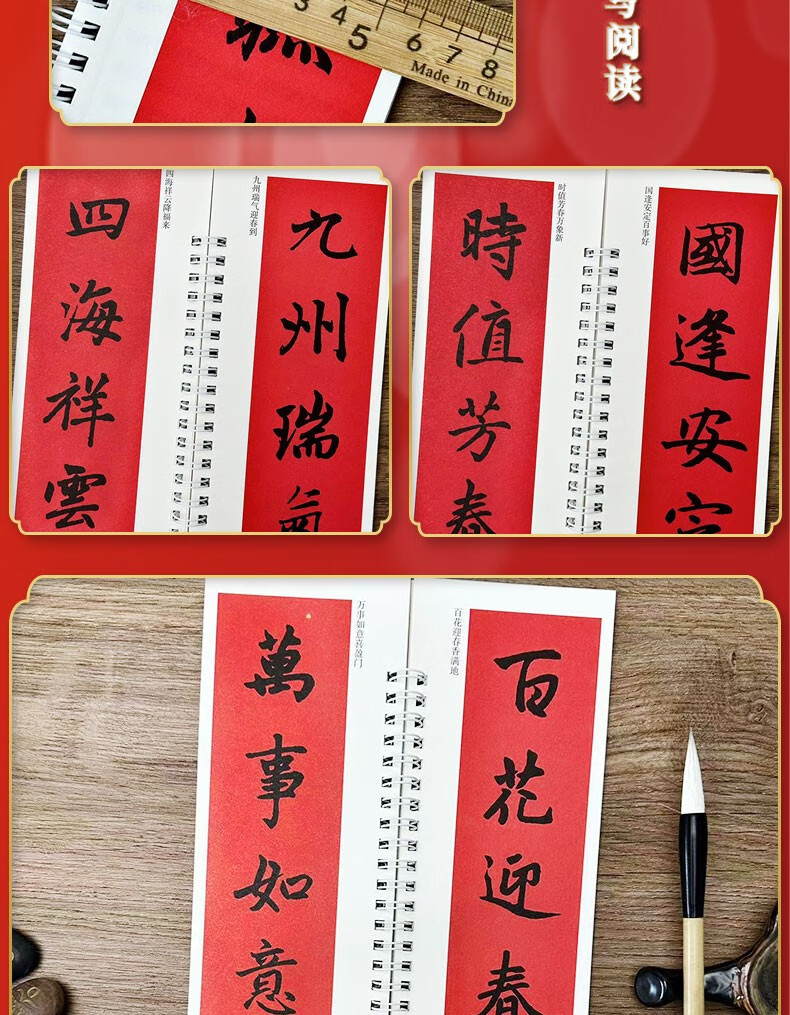 3 4 5 6 7 8
Made in China
阅读
九州瑞气迎春到
九州瑞氣
四海祥云降福来
四海祥雲
国逢安定百事好
國逢安定
时值芳春万象新
時值芳春
百花迎春香满地
百花迎春
万事如意喜盈门
萬事如意